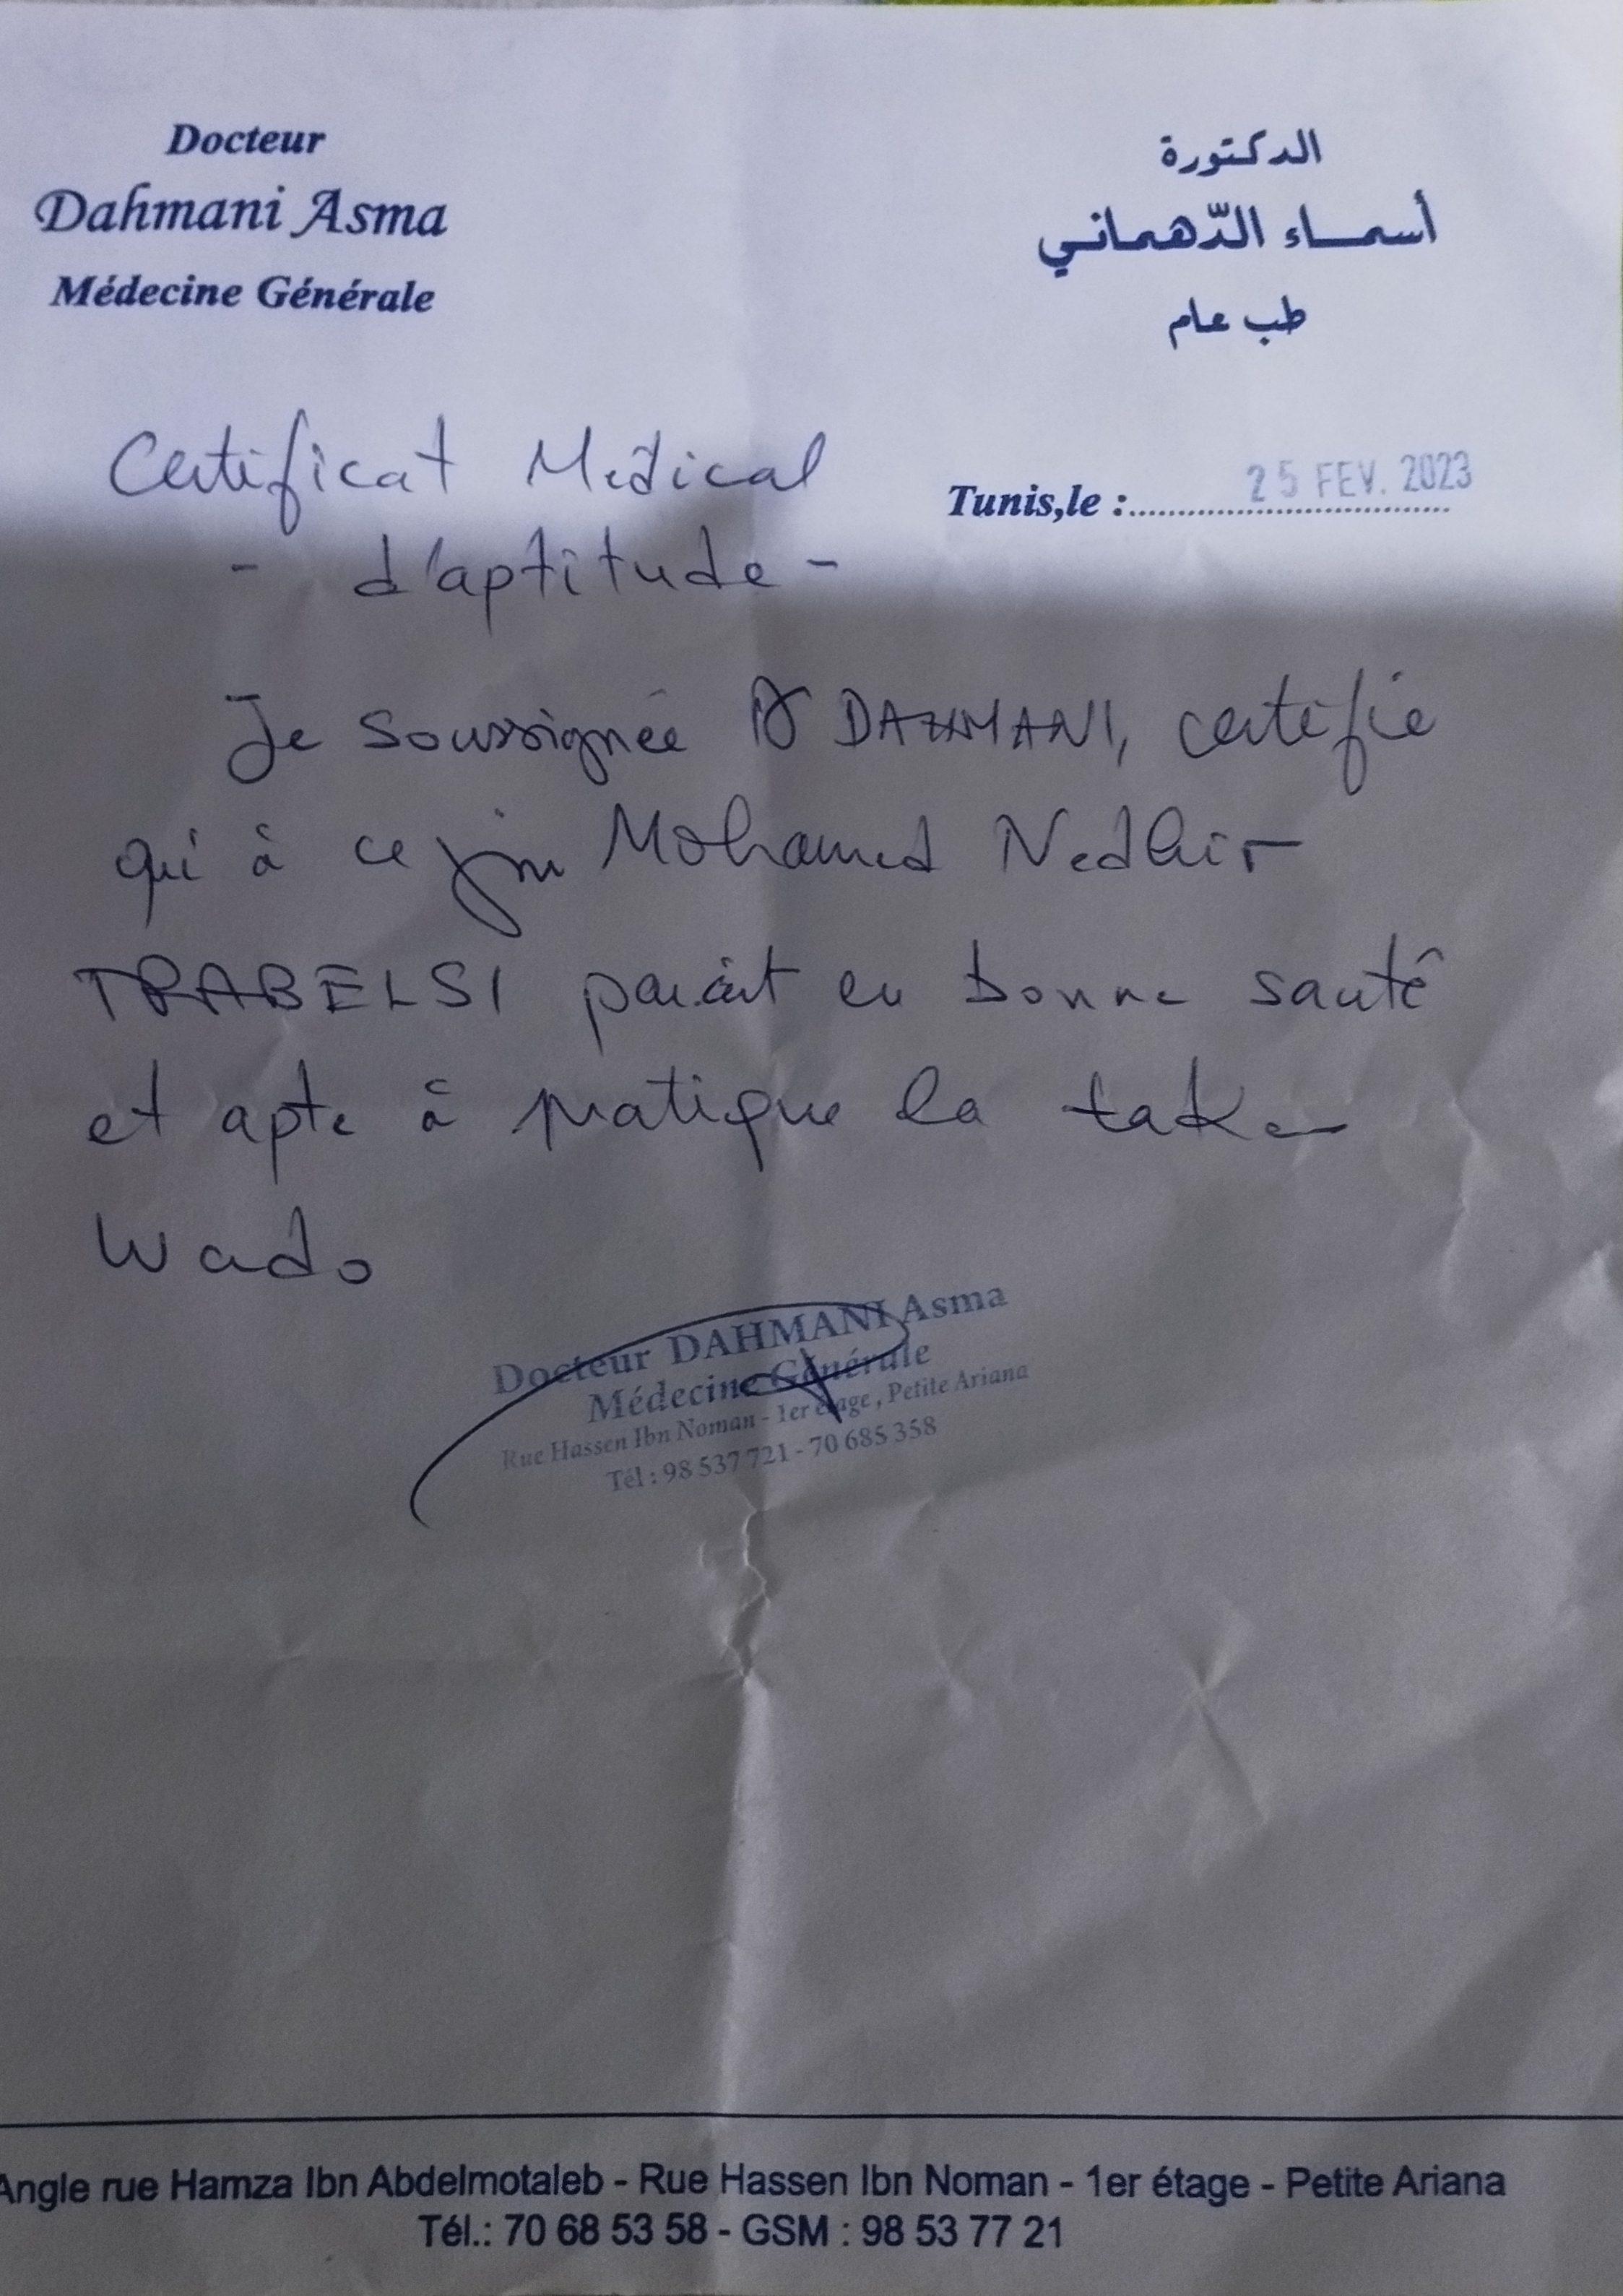 Docteur
Dahmani Asma
Médecine Générale
الدكتورة
أسماء الدّهماني
طب عام
Certificat Médical
- d'aptitude -
Tunis,le : 25 FEV. 2023
Je soussignée Dr DAHMANI, certifie
qu'à ce jour Mohamed Nedhir
TRABELSI parait en bonne santé
et apte à pratique la taek
wado
Docteur DAHMANI Asma
Médecine Générale
Rue Hassen Ibn Noman - 1er étage , Petite Ariana
Tél : 98 537 721 - 70 685 358
Angle rue Hamza Ibn Abdelmotaleb - Rue Hassen Ibn Noman - 1er étage - Petite Ariana
Tél.: 70 68 53 58 - GSM : 98 53 77 21